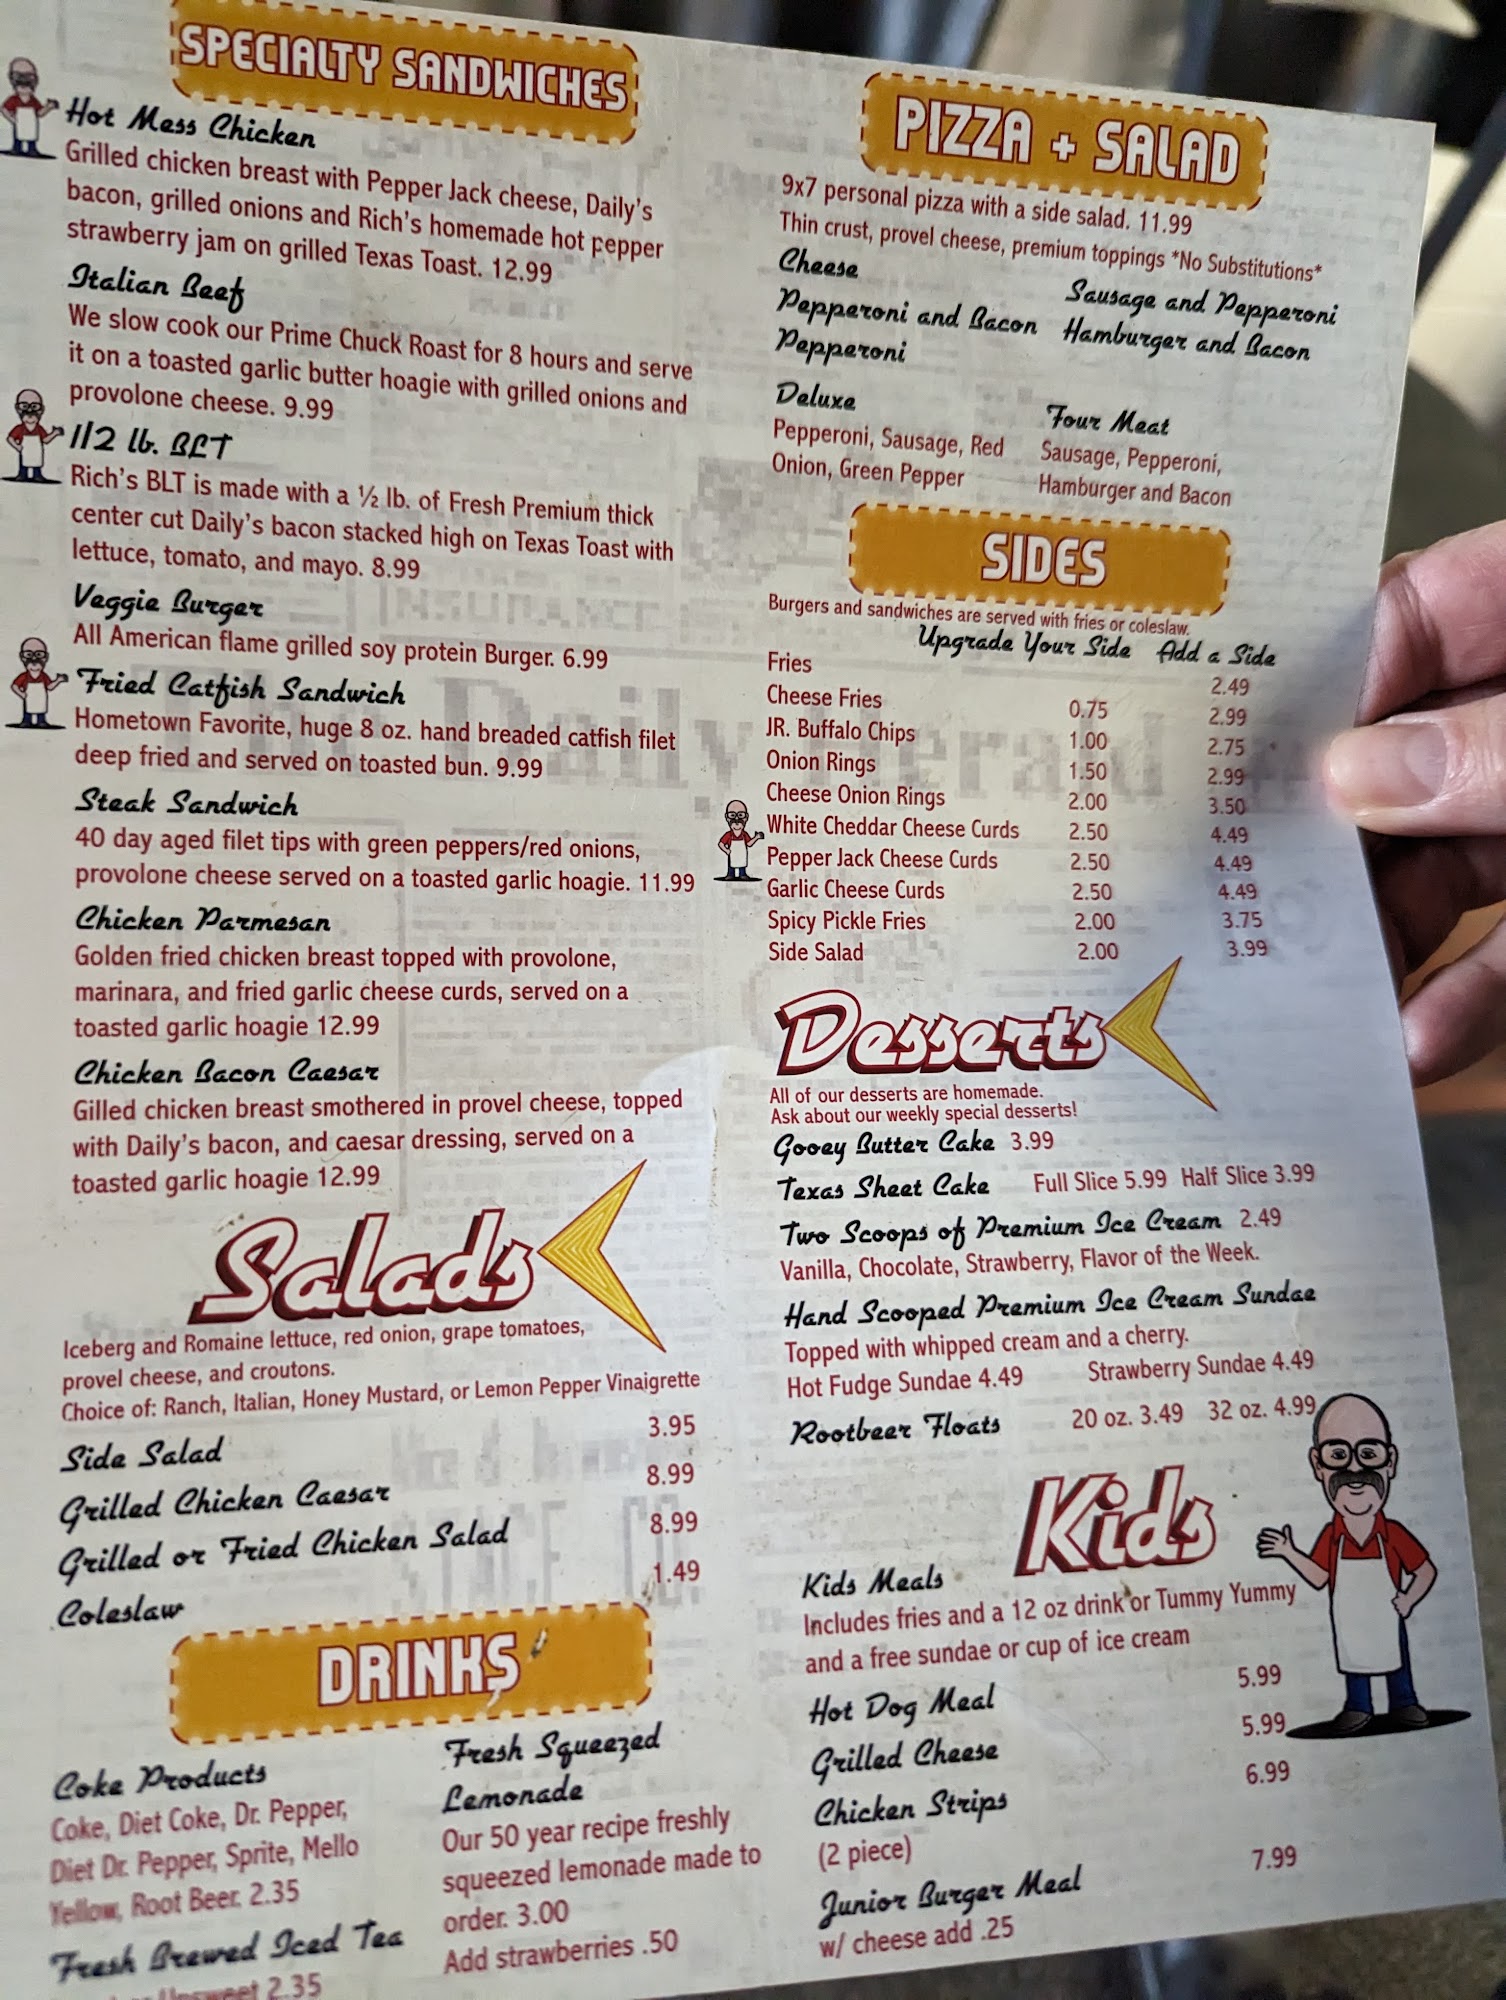 SPECIALTY SANDWICHES
Hot Mess Chicken
Grilled chicken breast with Pepper Jack cheese, Daily's
bacon, grilled onions and Rich's homemade hot pepper
strawberry jam on grilled Texas Toast. 12.99
Italian Beef
We slow cook our Prime Chuck Roast for 8 hours and serve
it on a toasted garlic butter hoagie with grilled onions and
provolone cheese. 9.99
1/2 lb. BLT
Rich's BLT is made with a ½ lb. of Fresh Premium thick
center cut Daily's bacon stacked high on Texas Toast with
lettuce, tomato, and mayo. 8.99
Veggie Burger
All American flame grilled soy protein Burger. 6.99
Fried Catfish Sandwich
Hometown Favorite, huge 8 oz. hand breaded catfish filet
deep fried and served on toasted bun. 9.99
Steak Sandwich
40 day aged filet tips with green peppers/red onions,
provolone cheese served on a toasted garlic hoagie. 11.99
Chicken Parmesan
Golden fried chicken breast topped with provolone,
marinara, and fried garlic cheese curds, served on a
toasted garlic hoagie 12.99
Chicken Bacon Caesar
Gilled chicken breast smothered in provel cheese, topped
with Daily's bacon, and caesar dressing, served on a
toasted garlic hoagie 12.99
Salads
Iceberg and Romaine lettuce, red onion, grape tomatoes,
provel cheese, and croutons.
Choice of: Ranch, Italian, Honey Mustard, or Lemon Pepper Vinaigrette
Side Salad 3.95
Grilled Chicken Caesar 8.99
Grilled or Fried Chicken Salad 8.99
Coleslaw 1.49
DRINKS
Coke Products
Coke, Diet Coke, Dr. Pepper,
Diet Dr. Pepper, Sprite, Mello
Yellow, Root Beer. 2.35
Fresh Brewed Iced Tea
Unsweet 2.35
Fresh Squeezed
Lemonade
Our 50 year recipe freshly
squeezed lemonade made to
order. 3.00
Add strawberries .50
PIZZA + SALAD
9x7 personal pizza with a side salad. 11.99
Thin crust, provel cheese, premium toppings *No Substitutions*
Cheese
Pepperoni and Bacon
Pepperoni
Sausage and Pepperoni
Hamburger and Bacon
Deluxe
Pepperoni, Sausage, Red
Onion, Green Pepper
Four Meat
Sausage, Pepperoni,
Hamburger and Bacon
SIDES
Burgers and sandwiches are served with fries or coleslaw.
Upgrade Your Side Add a Side
Fries 2.49
Cheese Fries 0.75 2.99
JR. Buffalo Chips 1.00 2.75
Onion Rings 1.50 2.99
Cheese Onion Rings 2.00 3.50
White Cheddar Cheese Curds 2.50 4.49
Pepper Jack Cheese Curds 2.50 4.49
Garlic Cheese Curds 2.50 4.49
Spicy Pickle Fries 2.00 3.75
Side Salad 2.00 3.99
Desserts
All of our desserts are homemade.
Ask about our weekly special desserts!
Gooey Butter Cake 3.99
Texas Sheet Cake Full Slice 5.99 Half Slice 3.99
Two Scoops of Premium Ice Cream 2.49
Vanilla, Chocolate, Strawberry, Flavor of the Week.
Hand Scooped Premium Ice Cream Sundae
Topped with whipped cream and a cherry.
Hot Fudge Sundae 4.49 Strawberry Sundae 4.49
Rootbeer Floats 20 oz. 3.49 32 oz. 4.99
Kids
Kids Meals
Includes fries and a 12 oz drink or Tummy Yummy
and a free sundae or cup of ice cream
Hot Dog Meal 5.99
Grilled Cheese 5.99
Chicken Strips 6.99
(2 piece)
Junior Burger Meal 7.99
w/ cheese add .25